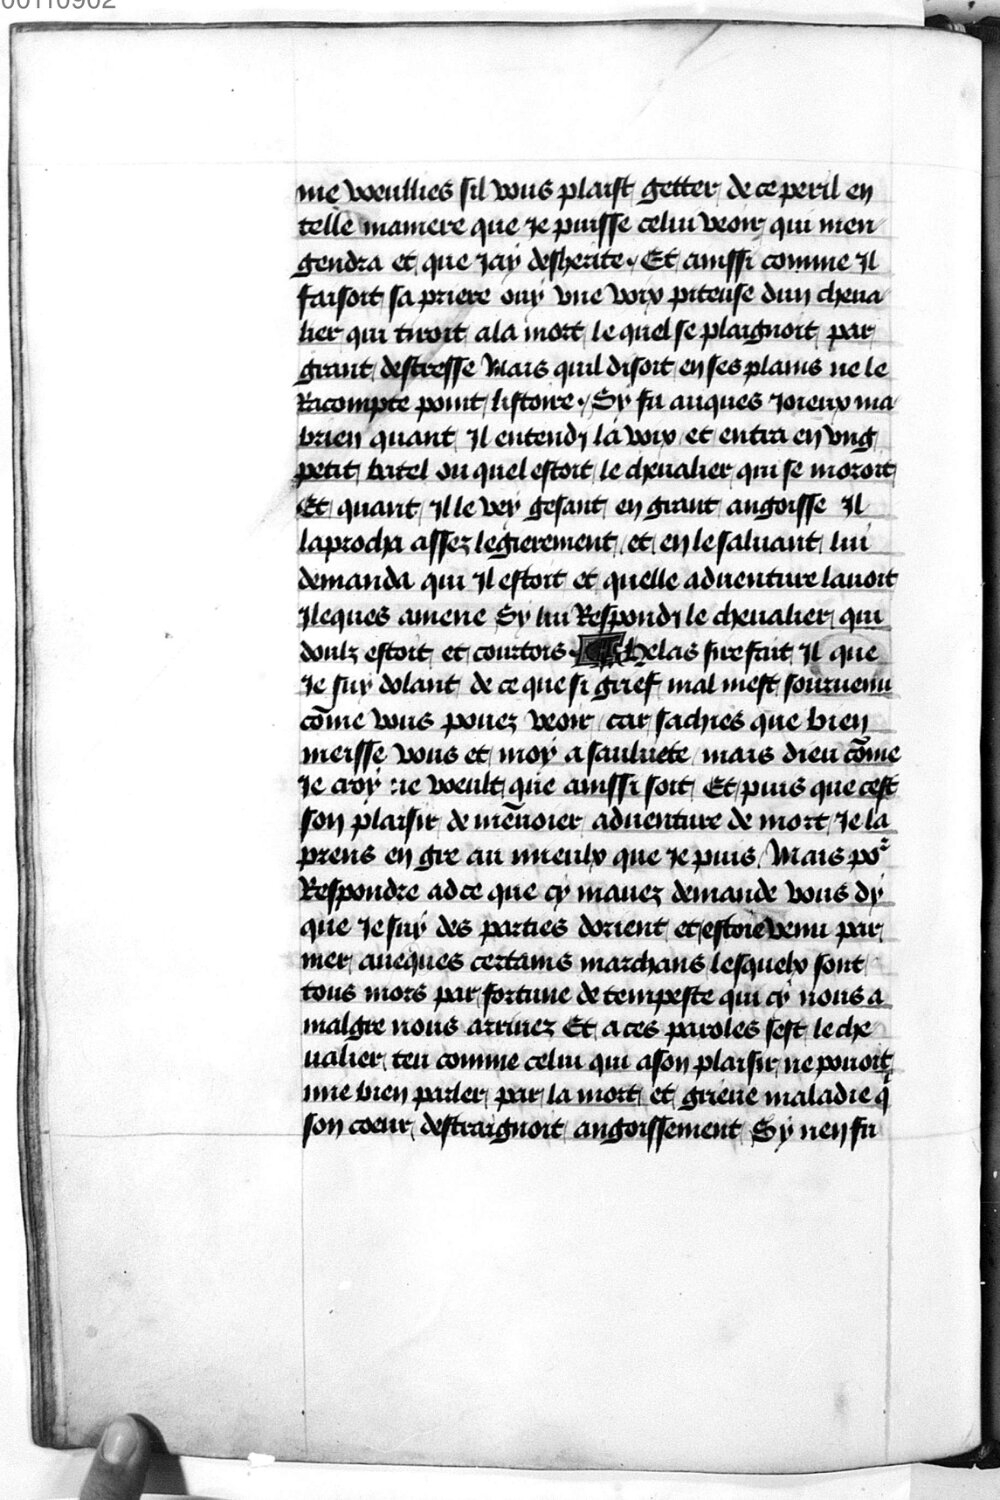 00110902
me voeullies sil vous plaist getter de ce peril en
telle maniere que Je puisse celui veoir qui men
gendra et que Jay desherite. Et ainssi comme Il
faisoit sa priere ouy vne voix piteuse dun cheua
lier qui tiroit ala mort le quel se plaignoit par
grant destresse Mais quil disoit en ses plains ne le
Racompte point listoire. Sy fu auques Joieux ma
brien quant Il entendy la voix et entra en vng
petit batel ou quel estoit le cheualier qui se moroit
Et quant Il le vey gesant en grant angoisse Il
laprocha assez legierement et en le saluant lui
demanda qui Il estoit et quelle aduenture lauoit
Ileques amene Sy lui Respondy le cheualier qui
doulz estoit et courtois. Helas sire fait Il que
Je suy dolant de ce que si grief mal mest souruenu
cōme vous pouez veoir car sachies que bien
meisse vous et moy a sauluete mais dieu cōme
Je croy ne voeult que ainssi soit Et puis que cest
son plaisir de mēuoier aduenture de mort Je la
prens en gre au mieulx que Je puis. Mais poʳ
Respondre adce que cy mauez demande vous dy
que Je suy des parties dorient et estoie venu par
mer aueques certains marchans lesquelx sont
tous mors par fortune de tempeste qui cy nous a
malgre nous arriuez Et a ces paroles sest le che
ualier teu comme celui qui a son plaisir ne pouoit
mie bien parler par la mort et grieue maladie q̄
son coeur destraignoit angoissement Sy nen fu